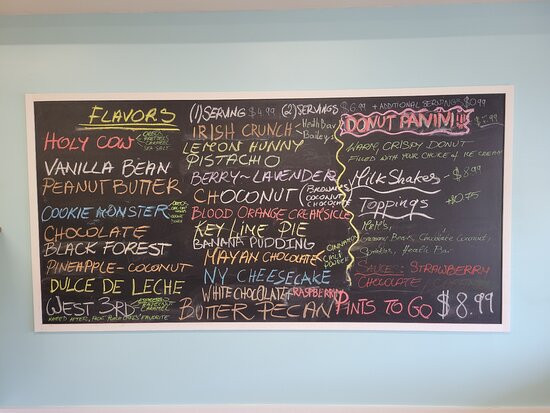 FLAVORS
HOLY COW
SEA SALT
VANILLA BEAN
PEANUT BUTTER
COOKIE MONSTER
CHOCOLATE
BLACK FOREST
PINEAPPLE-COCONUT
DULCE DE LECHE
WEST 3RD
CARAMEL
(1) SERVING $4.99 (2) SERVINGS $6.99 + ADDITIONAL SERVINGS $0.99
IRISH CRUNCH
Heath Bar
Baileys
LEMON HUNNY
PISTACHIO
BERRY~LAVENDER
CHOCONUT (BROWNIES
COCONUT
CHOCOLATE
BLOOD ORANGE CREAMSICLE
KEY LIME PIE
BANANA PUDDING
MAYAN CHOCOLATE
CINNAMON
CHILI
POWDER
NY CHEESECAKE
WHITE CHOCOLATE RASPBERRY
BUTTER PECAN
DONUT PANINI!!!
WARM, CRISPY DONUT
FILLED WITH YOUR CHOICE OF ICE CREAM
Milk Shakes - $8.99
Toppings $0.75
M&M's,
Heath Bar
SAUCE: STRAWBERRY
CHOCOLATE
PINTS TO GO $8.99